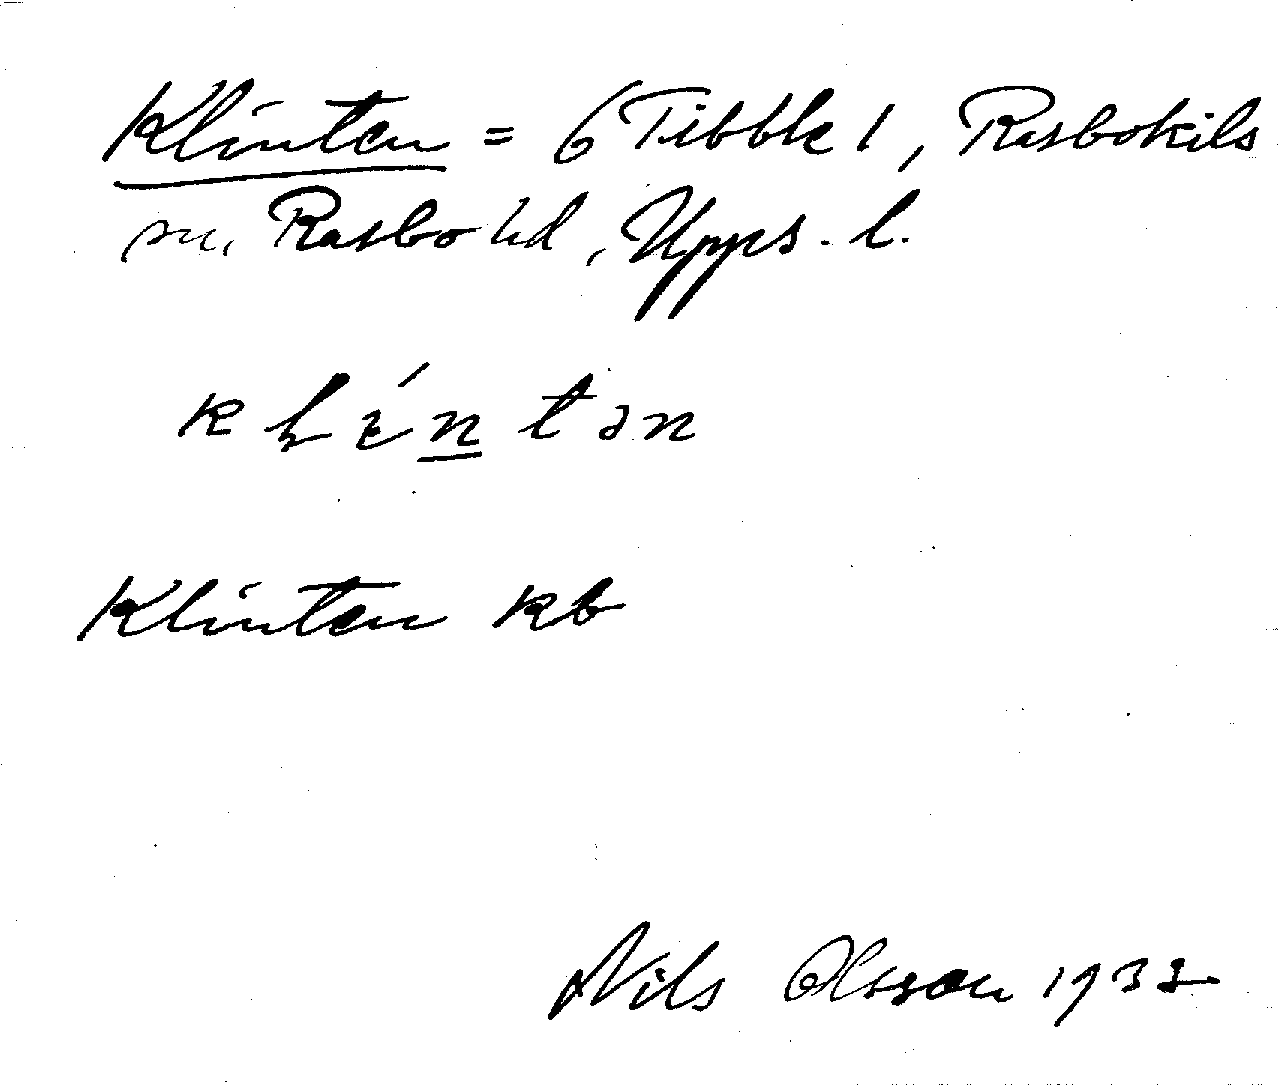 Klinten = 6 Tibble 1, Rasbokils
sn, Rasbo hd, Upps. l.
Klinten kb
Nils Olsson 1932